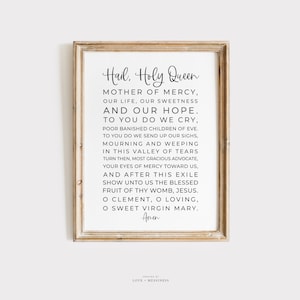 Hail, Holy Queen
MOTHER OF MERCY,
OUR LIFE, OUR SWEETNESS
AND OUR HOPE.
TO YOU DO WE CRY,
POOR BANISHED CHILDREN OF EVE.
TO YOU DO WE SEND UP OUR SIGHS,
MOURNING AND WEEPING
IN THIS VALLEY OF TEARS
TURN THEN, MOST GRACIOUS ADVOCATE,
YOUR EYES OF MERCY TOWARD US,
AND AFTER THIS EXILE
SHOW UNTO US THE BLESSED
FRUIT OF THY WOMB, JESUS.
O CLEMENT, O LOVING,
O SWEET VIRGIN MARY.
Amen